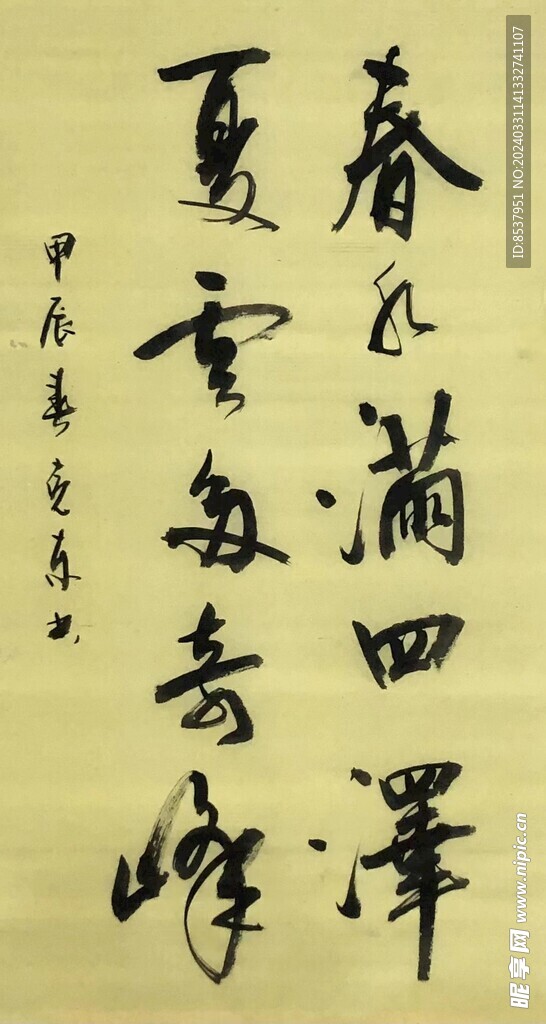 春水滿四澤
夏雲多奇峰
甲辰春克東书
ID:8537951 NO:20240331141332741107
昵享网 www.nipic.cn